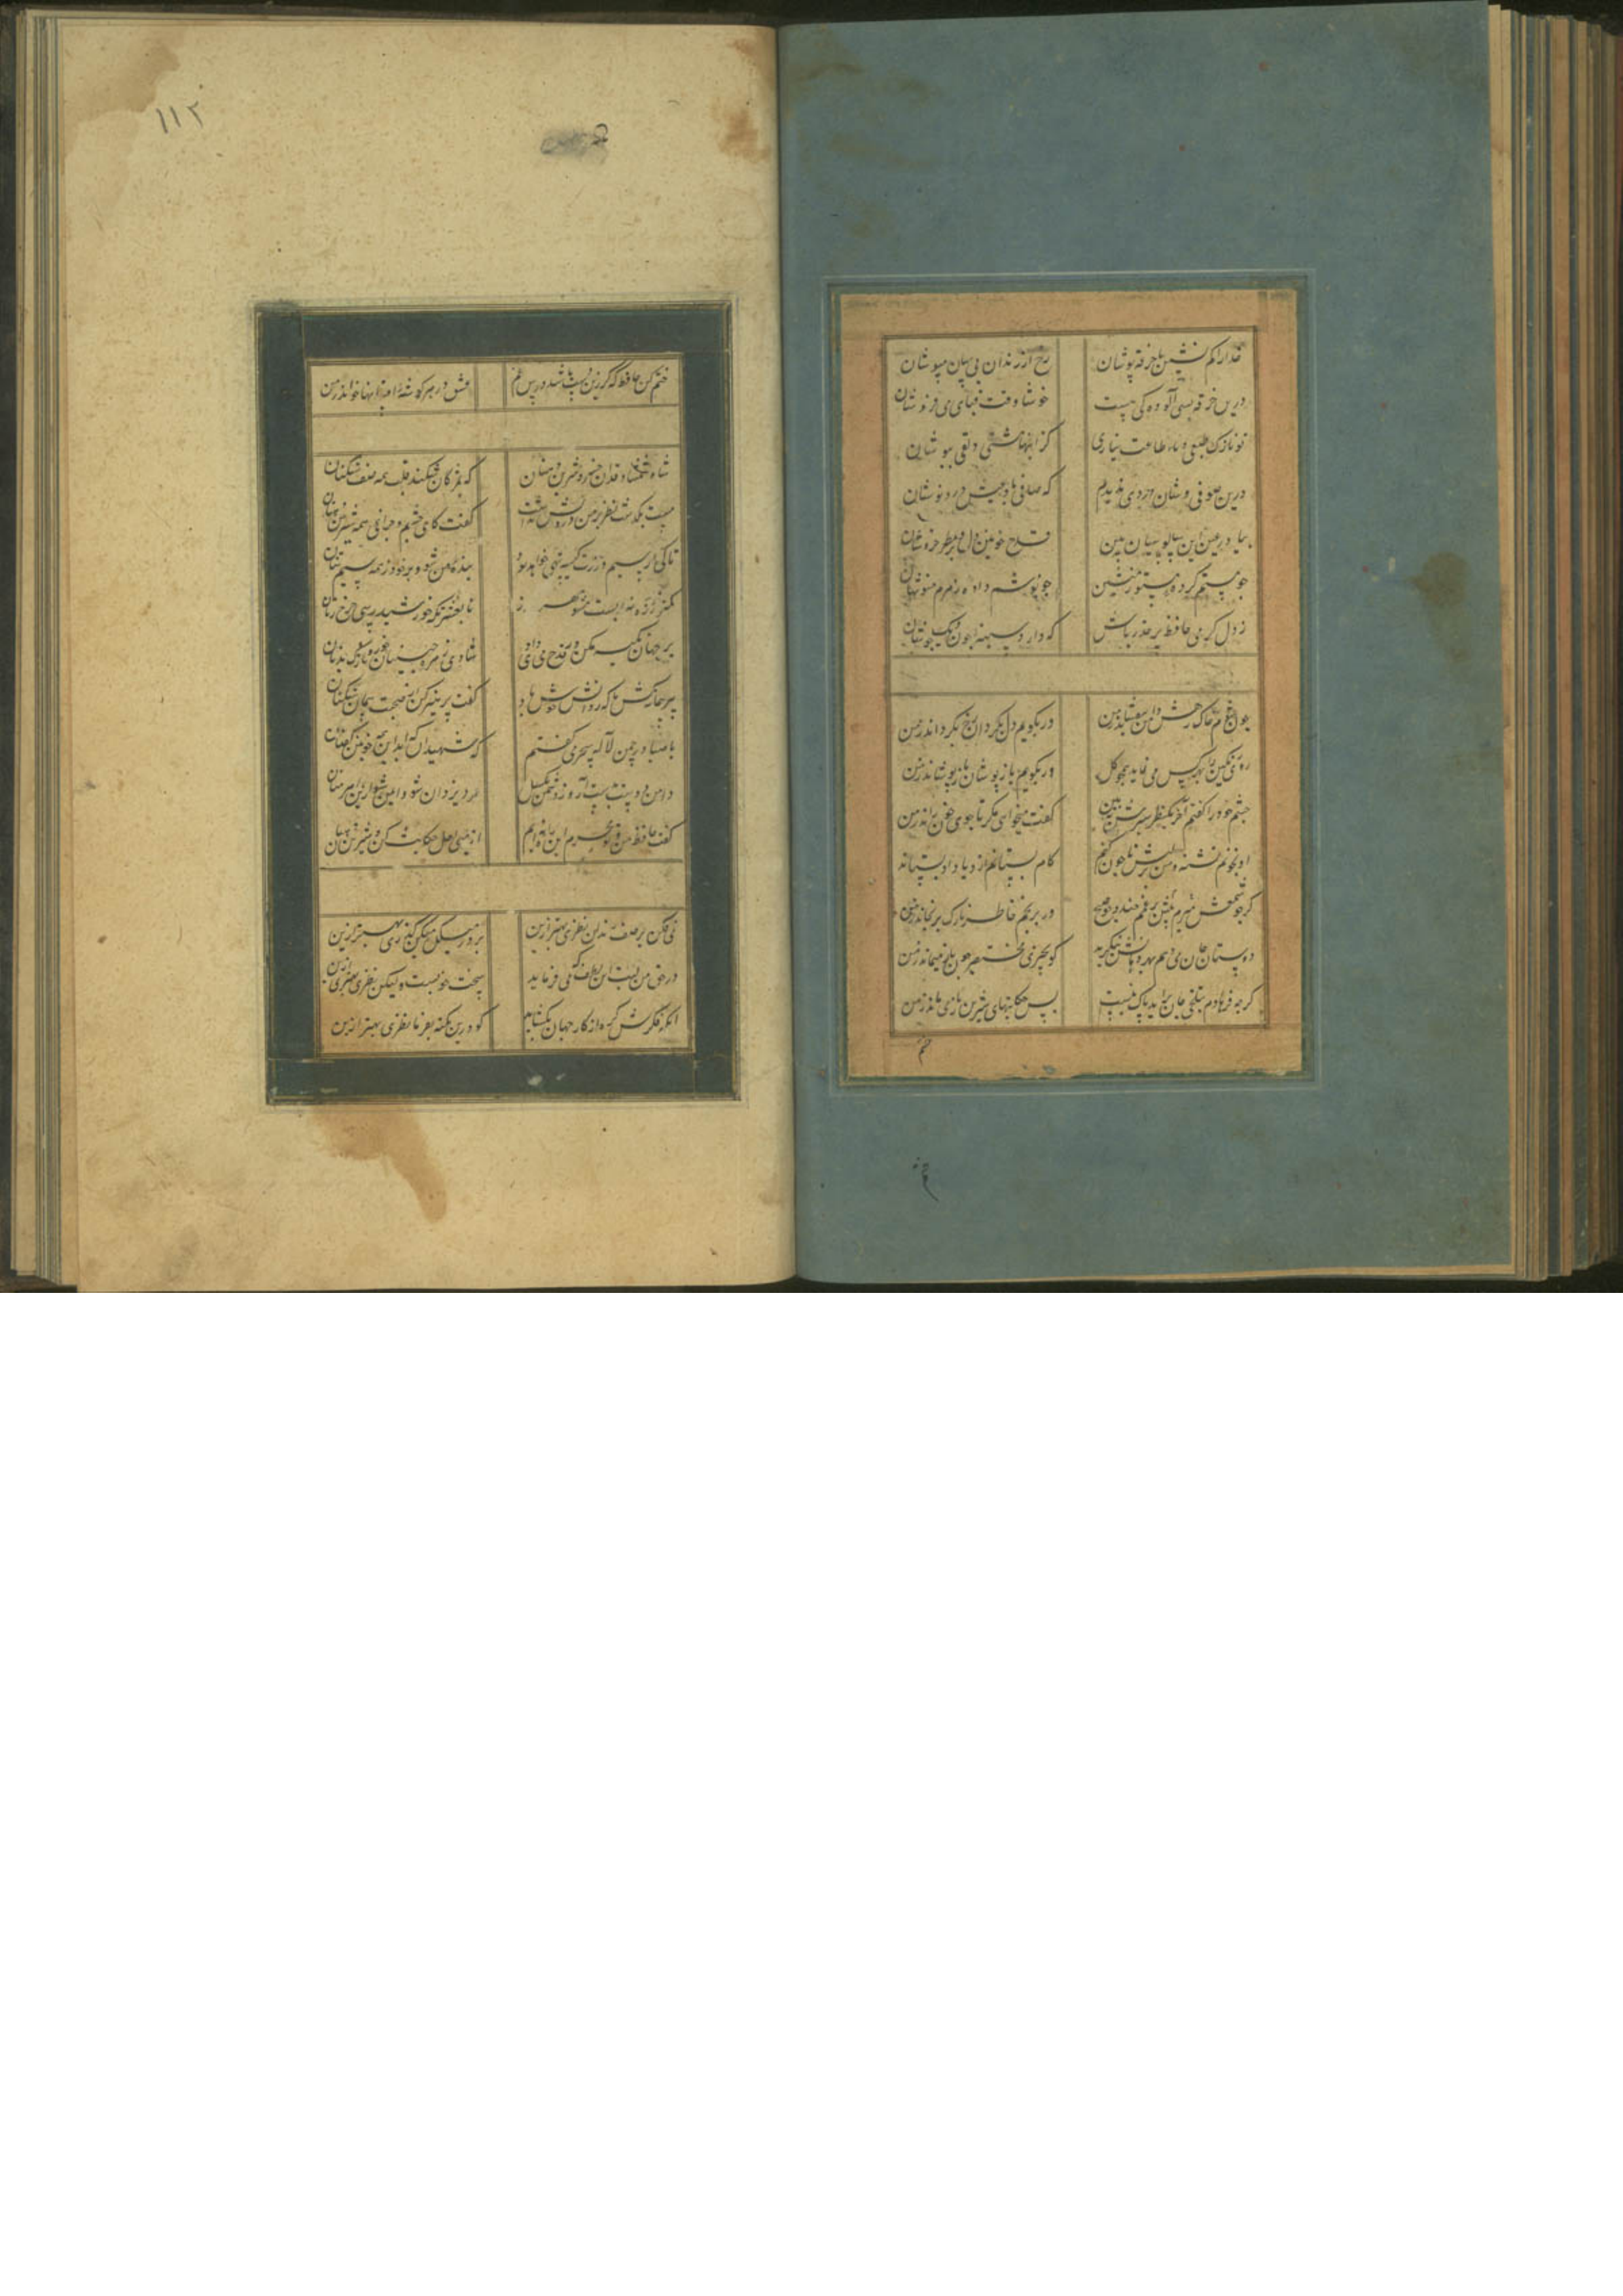 خدارا کم نشین با خرقه پوشان رخ از رندان بی سامان مپوشان
درین خرقه بسی آلودگی هست خوشا وقت قبای می فروشان
تو نازک طبعی و طاقت نیاری گرانیهای مشتی دلق پوشان
درین صوفی وشان دردی ندیدم که صافی باد عیش درد نوشان
بیا و زغبن این سالوسیان بین قدح خونین دل و بربط خروشان
چو مستم کرده مستور منشین چو نوشم داده زهرم منوشان
ز دل گرمی حافظ بر حذر باش که دارد سینه چون دیگ جوشان
چون شوم خاک رهش دامن بیفشاند ز من ور بگویم دل بگردان رخ بگرداند ز من
روی رنگین را بهر کس می نماید همچو گل ور بگویم باز پوشان باز پوشاند ز من
چشم خود را گفتم آخر یک نظر سیرش ببین گفت میخواهی مگر تا جوی خون راند ز من
او بخونم تشنه و من بر لبش تا چون کنم کام بستانم ازو یا داد بستاند ز من
گر چو شمعش پیش میرم بر غمم خندد چو صبح ور برنجم خاطر نازک برنجاند ز من
دوستان جان داده ام بهر دهانش بنگرید کو بچیزی مختصر چون باز میماند ز من
گرچه فرهادم بتلخی جان برآید باک نیست بس حکایتهای شیرین باز می ماند ز من
ختم
۱۱۲
ختم کن حافظ که گر زین دست باشد درس غم عشق در هر گوشه افسانها خواند ز من
شاه شمشاد قدان خسرو شیرین دهنان که بمژگان شکند قلب همه صف شکنان
مست بگذشت نظر بر من درویش انداخت گفت کای چشم و چراغ همه شیرین سخنان
تا کی از سیم و زرت کیسه تهی خواهد بود بنده من شو و برخور ز همه سیم تنان
کمتر از ذره نه پست مشو مهر بورز تا بخلوتگه خورشید رسی چرخ زنان
بر جهان تکیه مکن ور قدح می داری شادی زهره جبینان خور و نازک بدنان
پیر پیمانه کش ما که روانش خوش باد گفت پرهیز کن از صحبت پیمان شکنان
با صبا در چمن لاله سحر می گفتم که شهیدان که اند این همه خونین کفنان
دامن دوست بدست آر و ز دشمن بگسل مرد یزدان شو و ایمن گذر از اهرمنان
گفت حافظ من و تو محرم این راز نه ایم از می لعل حکایت کن و شیرین دهنان
می فکن بر صف رندان نظری بهتر ازین بر در میکده می کن گذری بهتر ازین
در حق من لبت این لطف که می فرماید سخت خوبست ولیکن قدری بهتر ازین
آنکه فکرش گره از کار جهان بگشاید گو درین نکته بفرما نظری بهتر ازین